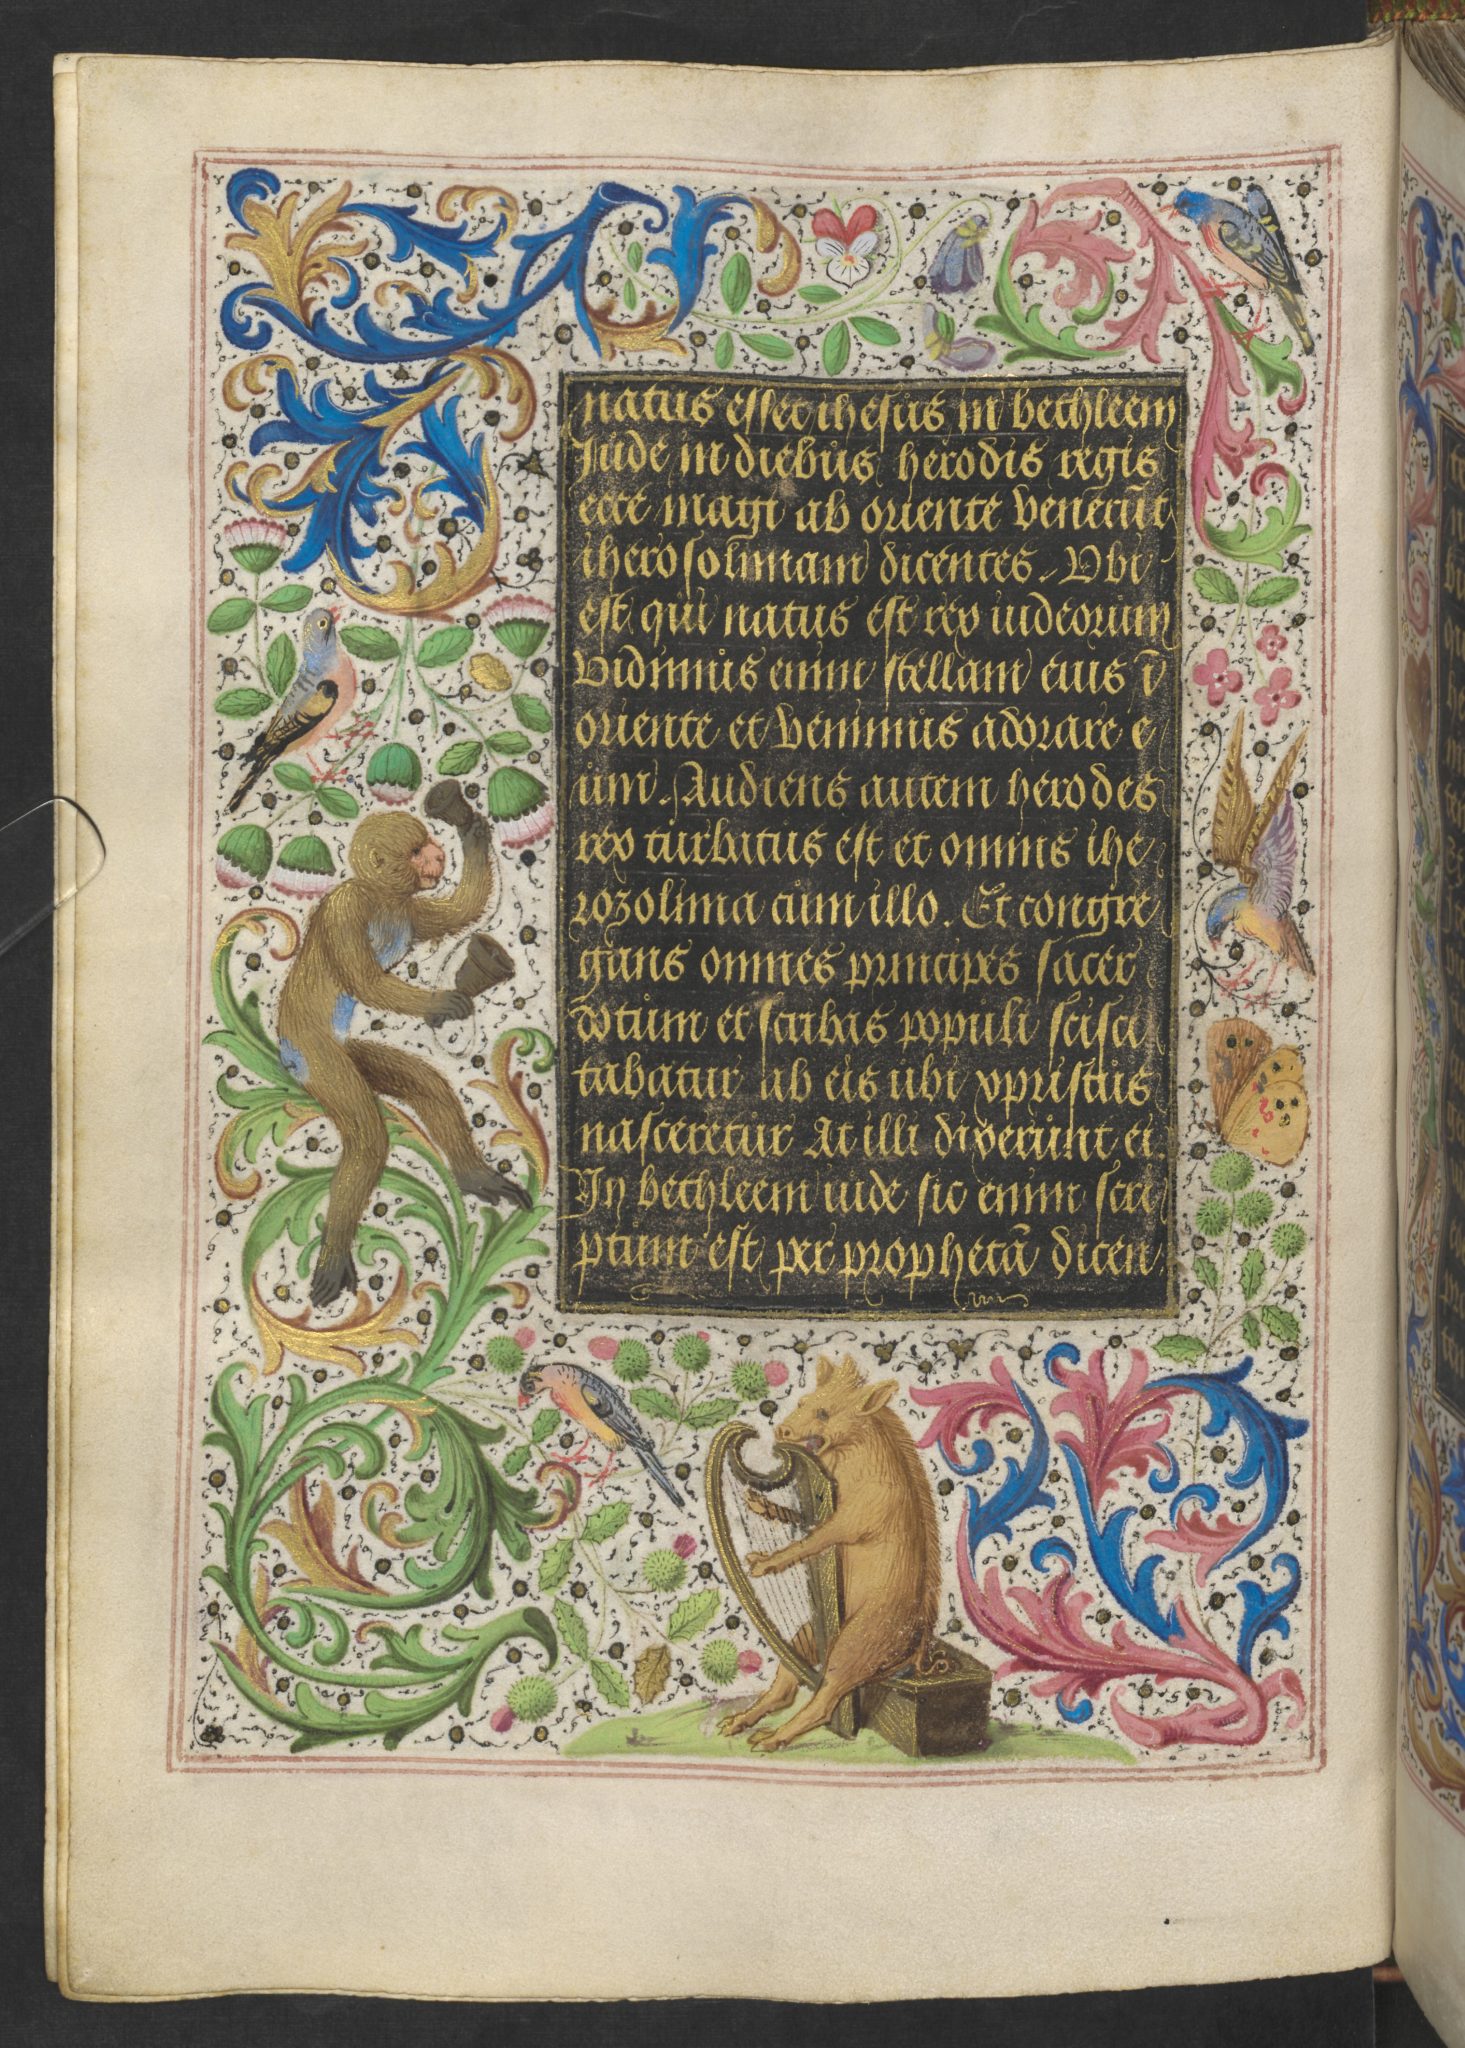 natus esset ihesus in bethleem
Iude in diebus herodis regis
ecce magi ab oriente venerūt
iherosolimam dicentes. Vbi
est qui natus est rex iudeorum
Vidimus enim stellam eius ī
oriente et venimus adorare e
um. Audiens autem herodes
rex turbatus est et omnis ihe
rozolima cum illo. Et congre
gans omnes principes sacer
dotum et scribas populi scisci
tabatur ab eis ubi xpristus
nasceretur At illi dixerunt ei.
In bethleem iude sic enim scri
ptum est per prophetā dicen